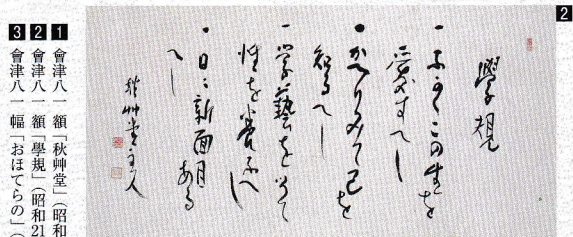 2
學規
一 ふかくこの生を
愛すへし
一 かへりみて己を
知るへし
一 学藝を以て
性を養ふへし
一 日々新面目ある
へし
秋艸堂主人
1 會津八一 額「秋艸堂」(昭和
2 會津八一 額「學規」(昭和21
3 會津八一 幅「おほてらの」(